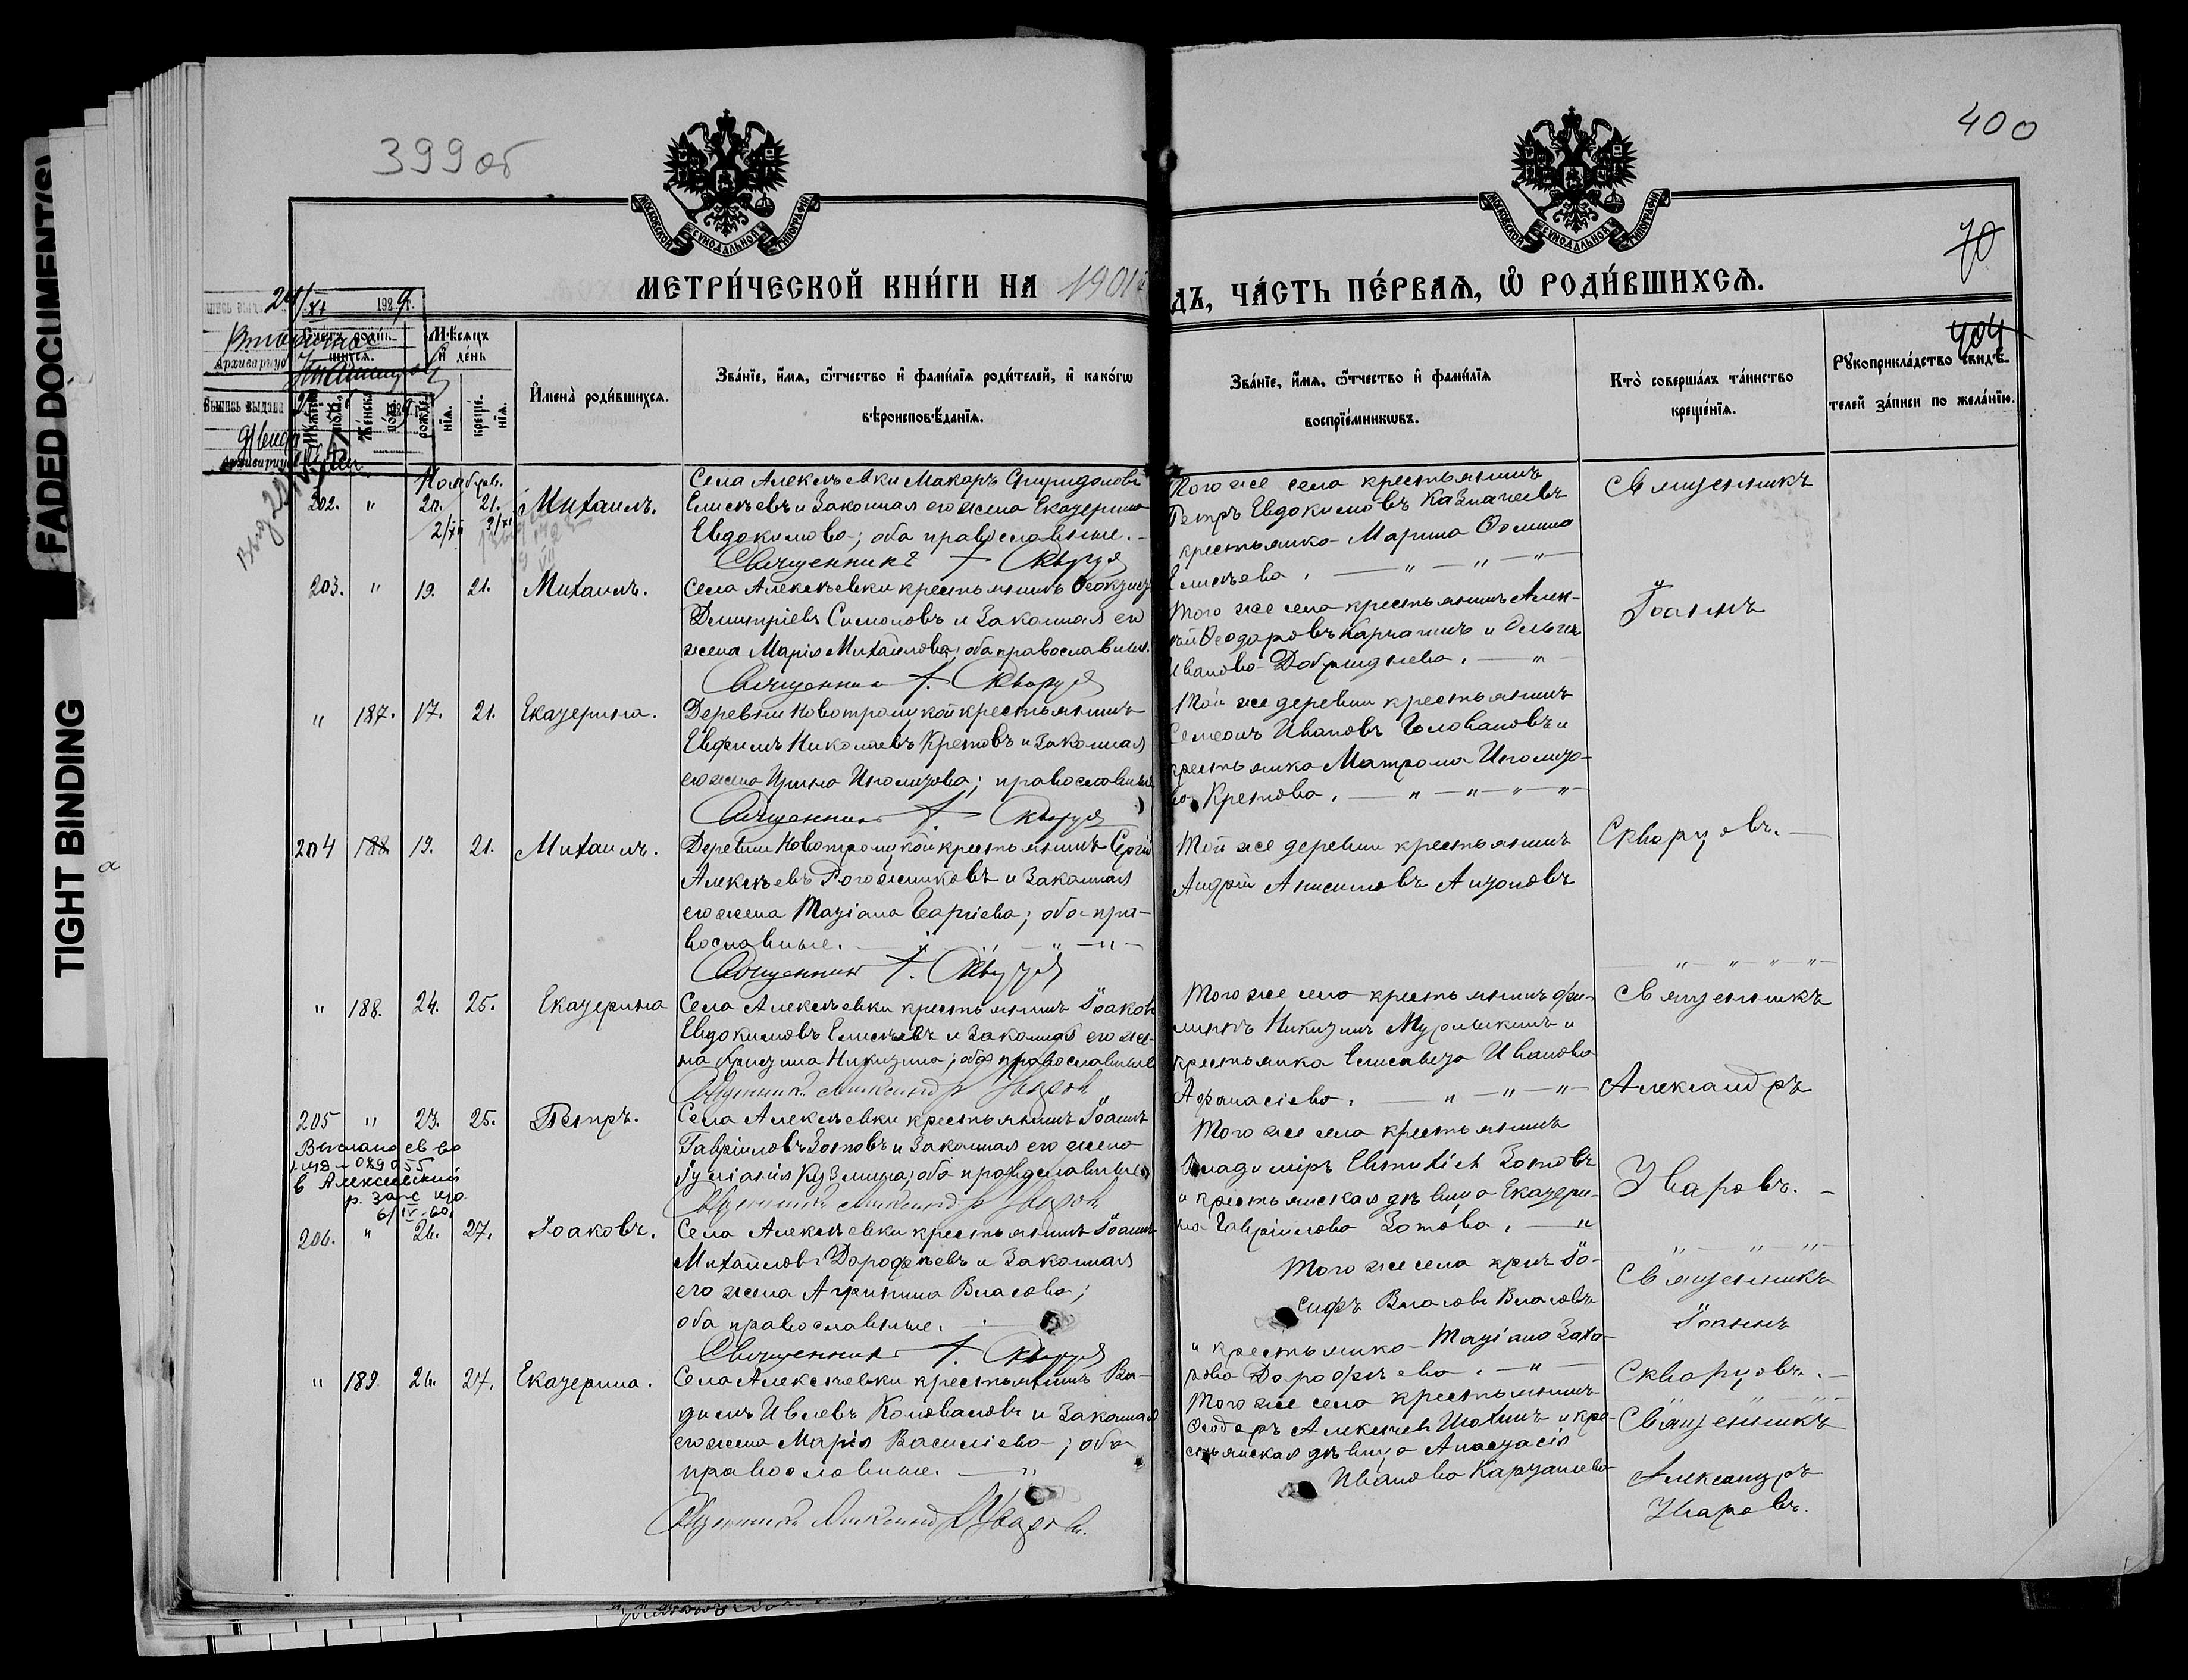 FADED DOCUMENT(S)
TIGHT BINDING
399 об
400
70
404
МОСКОВСКОЙ СѴНОДАЛЬНОЙ ТИПОГРАФІИ
МОСКОВСКОЙ СѴНОДАЛЬНОЙ ТИПОГРАФІИ
МЕТРИ́ЧЕСКОЙ КНИ́ГИ НА 1901
ДЪ, ЧА́СТЬ ПЕ́РВАЯ, Ѡ РОДИ́ВШИХСЯ.
24/XI 1989г.
Архивариус
Выпись выдана
Архивариус
Счетъ роди́вшихся.
Мѣсяцъ и де́нь
Мꙋжеска по́ла.
Же́нска по́ла.
рожде́нїя.
креще́нїя.
Имена̀ роди́вшихся.
Зва́нїе, и́мя, ѻ́тчество и фами́лїя роди́телей, и како́гѡ
вѣроисповѣ́данїя.
Зва́нїе, и́мя, ѻ́тчество и фами́лїя
воспрїе́мникѡвъ.
Кто̀ соверша́лъ та́инство
креще́нїя.
Рꙋкоприкла́дство свидѣ́
телей за́писи по жела́нїю.
Ноябрь.
202. " 20. 21. Михаилъ.
Села Алексѣевки Макаръ Спиридоновъ
Елисѣевъ и Законная его жена Екатерина
Евдокимова; оба православные.
Священникъ І. Скворцов
Того же села крестьянинъ
Петръ Евдокимовъ Казначеевъ
крестьянка Марина Фомина
Елисѣева. — " — " — "
Священникъ
203. " 19. 21. Михаилъ.
Села Алексѣевки крестьянинъ Ѳеоктистъ
Димитріевъ Симоновъ и Законная его
жена Марія Михайлова; оба православные.
Священник І. Скворцов
Того же села крестьянинъ Алек-
сѣй Ѳеодоровъ Карпачинъ и
Иванова Добрыднева. — "
Іоаннъ
" 187. 17. 21. Екатерина.
Деревни Новотроицкой крестьянинъ
Евфимъ Николаевъ Кретовъ и Законная
его жена Ирина Иполитова; православные
Священник І. Скворцов
Той же деревни крестьянинъ
Семеонъ Ивановъ Головановъ и
крестьянка Матрона Иполито-
ва Кретова. — " — " — " — "
204 188 19. 21. Михаилъ.
Деревни Новотроицкой крестьянинъ Сергій
Алексѣевъ Рогожниковъ и Законная
его жена Татіана Георгіева; оба пра-
вославные. — " — " — " —
Священник І. Скворцов
Той же деревни крестьянинъ
Андрей Анисимовъ Антоновъ
Скворцовъ. —
— " — " — " — " —
" 188. 24. 25. Екатерина
Села Алексѣевки крестьянинъ Іоаковъ
Евдокимовъ Елисѣевъ и Законная его же-
на Христина Никитина; оба православные
Священник Александр Уваров
Того же села крестьянинъ Фи-
липпъ Никитинъ Мурлыкинъ и
крестьянка Елисавета Иванова
Афанасіева. — " — " — "
Священникъ
Александръ
205 " 23. 25. Петръ.
Выслано св во
в Алексеевский
р. загс
6/IV-60г
Села Алексѣевки крестьянинъ Іоаннъ
Гавріиловъ Зотовъ и Законная его жена
Іуліанія Кузмина; оба православные
Священник Александр Уваров
Того же села крестьянинъ
Владиміръ Евтихіевъ Зотовъ
и крестьянская дѣвица Екатери-
на Гавріилова Зотова. — "
Уваровъ. —
— " — " — " —
206. " 26. 27. Іоаковъ.
Села Алексѣевки крестьянинъ Іоаннъ
Михайловъ Дорофѣевъ и Законная
его жена Агрипина Власова;
оба православные. —
Священник І. Скворцов
Того же села крест. Іо-
сифъ Власовъ Власовъ
и крестьянка Татіана Заха-
рова Дорофѣева. — "
Священникъ
Іоаннъ
Скворцовъ. —
" 189. 26. 27. Екатерина.
Села Алексѣевки крестьянинъ Ва-
димъ Ивлевъ Коноваловъ и Законная
его жена Марія Василіева; оба
православные. — "
Священник Александр Уваров.
Того же села крестьянинъ
Ѳеодоръ Алексѣевъ Шохинъ и кре-
стьянская дѣвица Анастасія
Иванова Карташева
Священникъ
Александръ
Уваровъ.